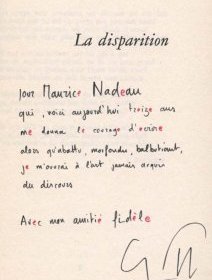 La disparition
pour Maurice Nadeau
qui, voici aujourd'hui treize ans
me donna le courage d'écrire
alors qu'abattu, morfondu, balbutiant,
je m'ouvrais à l'art jamais acquis
du discours
Avec mon amitié fidèle
GP